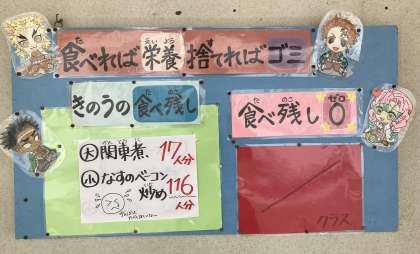 食べれば栄養捨てればゴミ
きのうの食べ残し
食べ残し0
大 関東煮、17人分
小 なすのベーコン
炒め 116人分
クラス